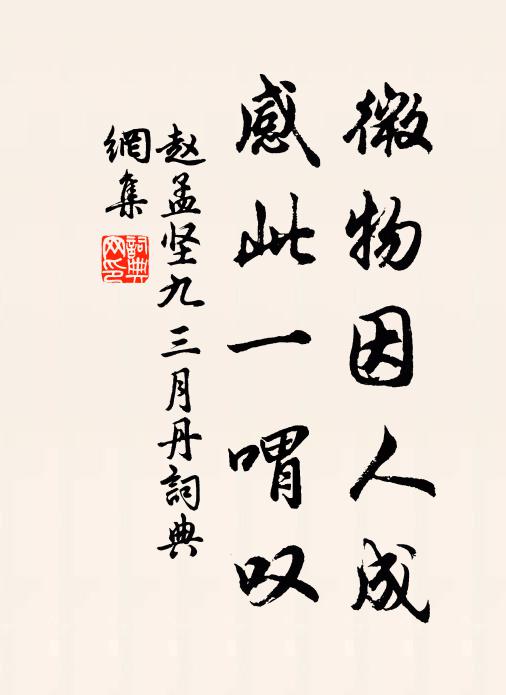 微物因人成
感此一喟叹
赵孟坚九三月丹詞典
網集
詞典
网印